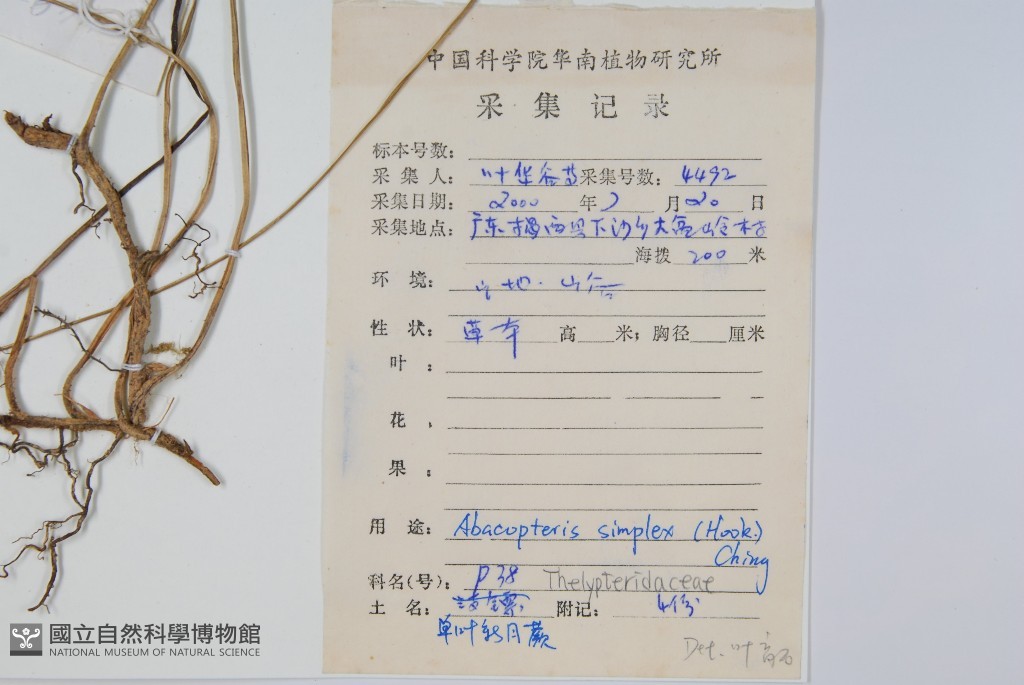 中国科学院华南植物研究所
采集记录
标本号数：
采集人：叶华谷等 采集号数：4492
采集日期：2000年 月20日
采集地点：广东揭西县下沙乡大 村
海拨 200 米
环境： 地．山谷
性状：草本 高 米；胸径 厘米
叶：
花．
果：
用途：Abacopteris simplex (Hook.)
Ching
科名(号)：P38 Thelypteridaceae
土名： 附记：4份
单叶新月蕨
Det. 叶
國立自然科學博物館
NATIONAL MUSEUM OF NATURAL SCIENCE